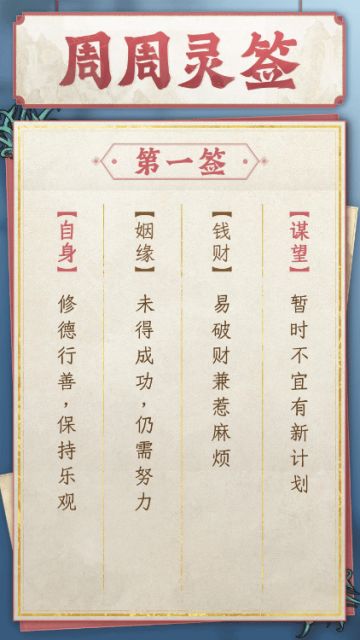 周周灵签
第一签
【谋望】
暂时不宜有新计划
【钱财】
易破财兼惹麻烦
【姻缘】
未得成功，仍需努力
【自身】
修德行善，保持乐观